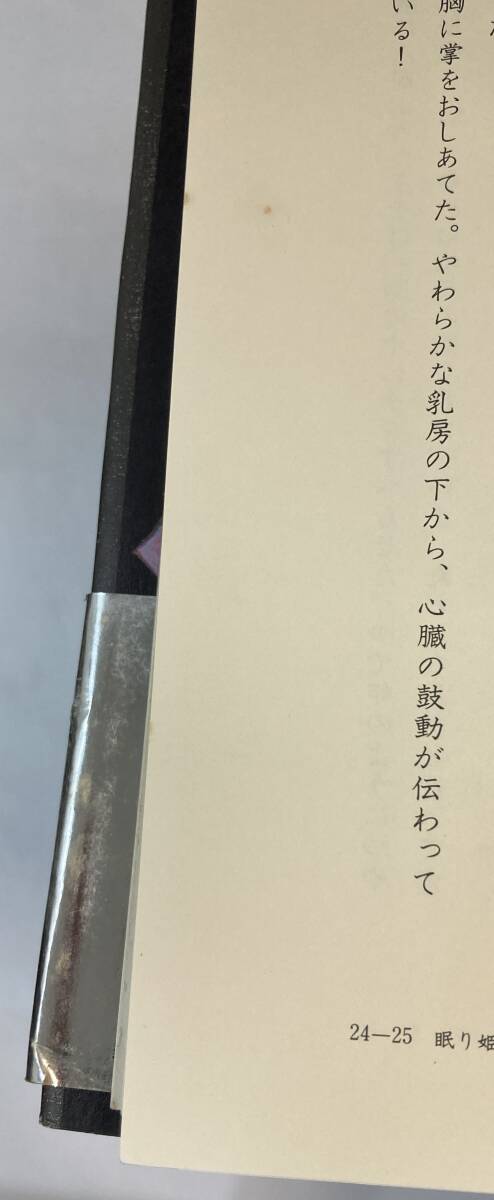 胸に掌をおしあてた。やわらかな乳房の下から、心臓の鼓動が伝わって
いる！
24—25 眠り姫